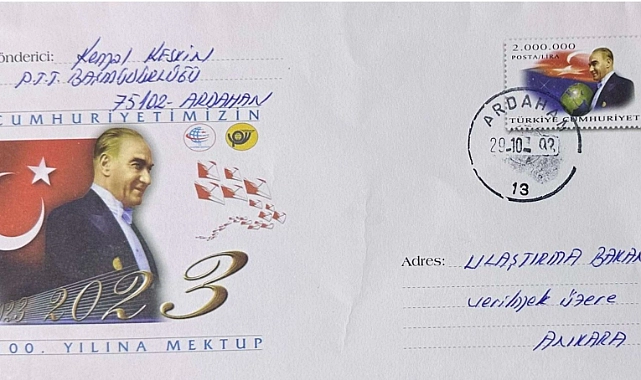 Gönderici: Kemal KESKİN
P.T.T. BAŞMÜDÜRLÜĞÜ
75102- ARDAHAN
CUMHURİYETİMİZİN
2023
00. YILINA MEKTUP
2.000.000
POSTA/LİRA
TÜRKİYE CUMHURİYET
ARDAHAN
29-10
13
Adres: ULAŞTIRMA BAKAN
verilmek üzere
ANKARA